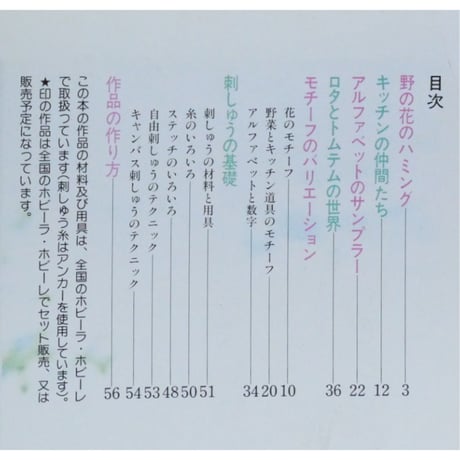 目次
野の花のハミング――3
キッチンの仲間たち――12
アルファベットのサンプラー――22
ロタとトムテムの世界――36
モチーフのバリエーション
花のモチーフ――10
野菜とキッチン道具のモチーフ――20
アルファベットと数字――34
刺しゅうの基礎
刺しゅうの材料と用具――51
糸のいろいろ――50
ステッチのいろいろ――48
自由刺しゅうのテクニック――53
キャンバス刺しゅうのテクニック――54
作品の作り方――56
この本の作品の材料及び用具は、全国のホビーラ・ホビーレ
で取扱っています(刺しゅう糸はアンカーを使用しています)。
★印の作品は全国のホビーラ・ホビーレでセット販売、又は
販売予定になっています。